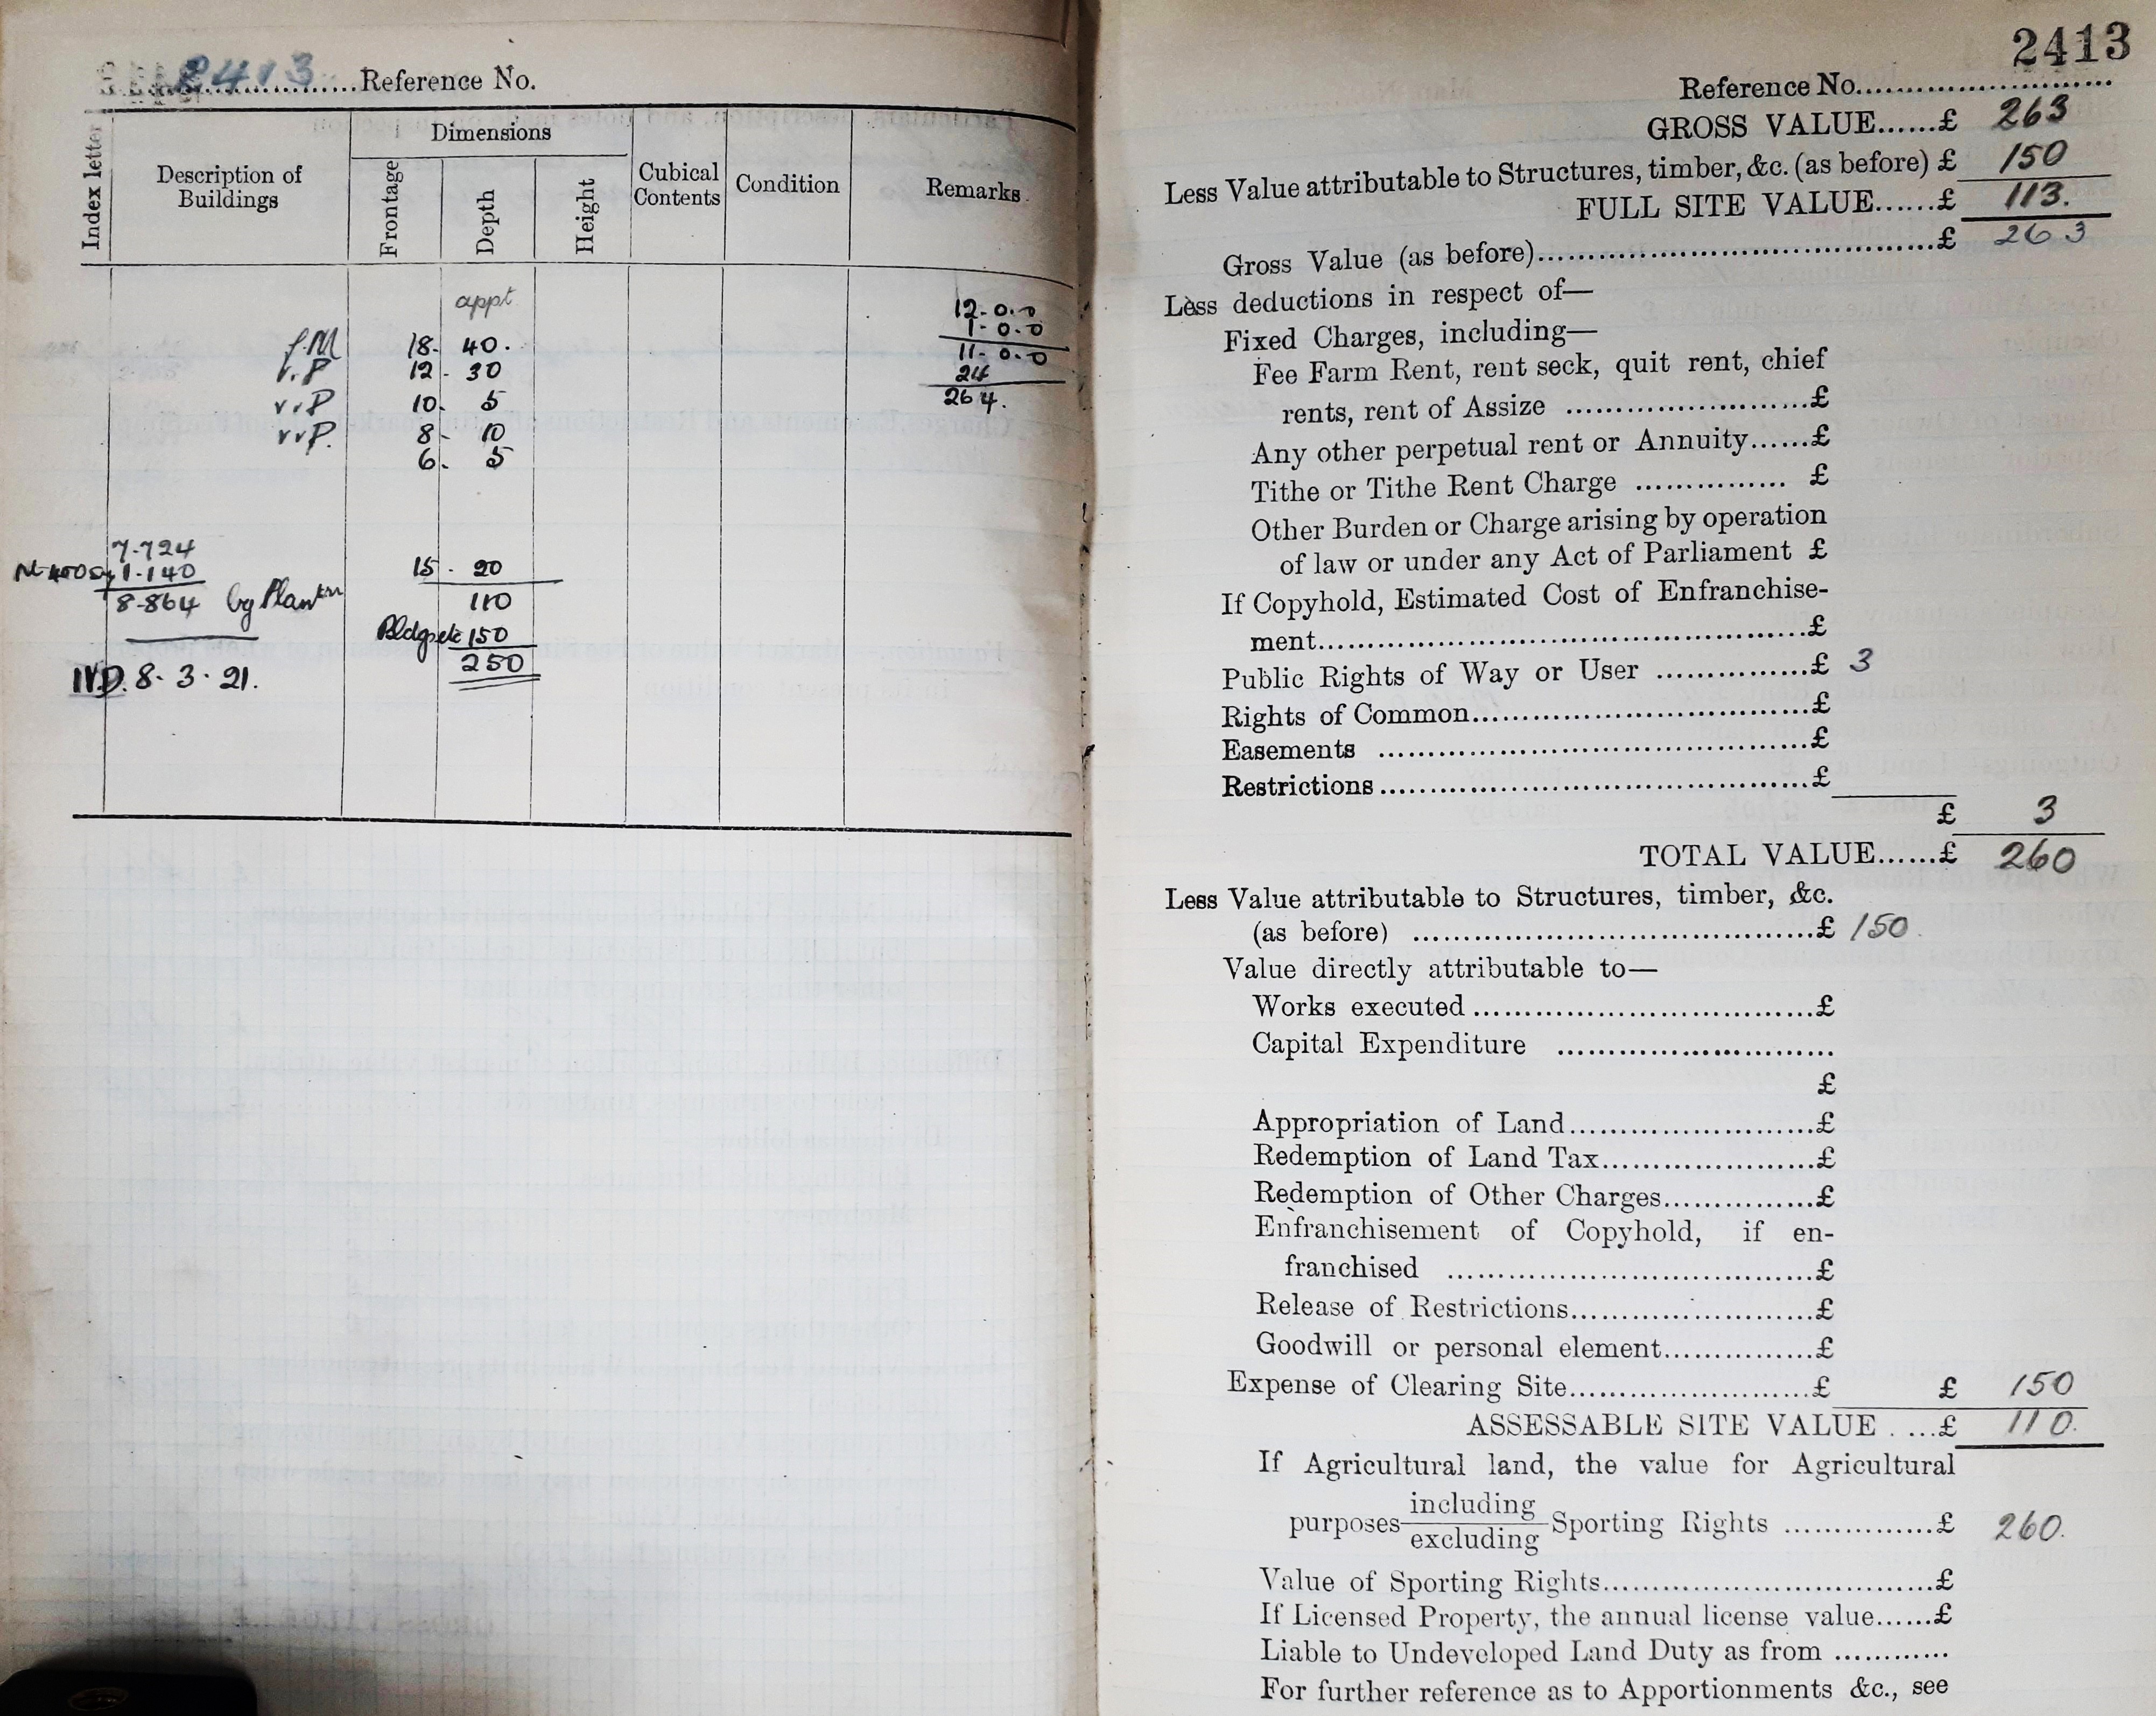 2413 Reference No.
Index letter
Description of Buildings
Dimensions
Frontage
Depth
Height
Cubical Contents
Condition
Remarks
appt
12-0.0
1-0.0
18. 40.
11-0.0
12 - 30
24
v.P 10. 5
264.
vvP. 8 - 10
6. 5
7.724
1.140
15 - 20
8.864 by Plantn
110
Bldgs etc 150
250
IVD. 8. 3. 21.
2413
Reference No.
GROSS VALUE......£ 263
Less Value attributable to Structures, timber, &c. (as before) £ 150
FULL SITE VALUE......£ 113.
Gross Value (as before)......£ 263
Less deductions in respect of—
Fixed Charges, including—
Fee Farm Rent, rent seck, quit rent, chief
rents, rent of Assize ......£
Any other perpetual rent or Annuity......£
Tithe or Tithe Rent Charge ...... £
Other Burden or Charge arising by operation
of law or under any Act of Parliament £
If Copyhold, Estimated Cost of Enfranchise-
ment......£
Public Rights of Way or User ......£ 3
Rights of Common......£
Easements ......£
Restrictions......£
£ 3
TOTAL VALUE......£ 260
Less Value attributable to Structures, timber, &c.
(as before) ......£ 150
Value directly attributable to—
Works executed......£
Capital Expenditure ......
£
Appropriation of Land......£
Redemption of Land Tax......£
Redemption of Other Charges......£
Enfranchisement of Copyhold, if en-
franchised ......£
Release of Restrictions......£
Goodwill or personal element......£
Expense of Clearing Site......£ £ 150
ASSESSABLE SITE VALUE ....£ 110.
If Agricultural land, the value for Agricultural
purposes including excluding Sporting Rights ......£ 260.
Value of Sporting Rights......£
If Licensed Property, the annual license value......£
Liable to Undeveloped Land Duty as from ......
For further reference as to Apportionments &c., see